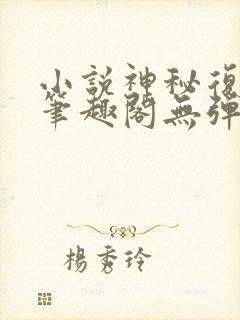 小說神秘復
筆趣閣無彈
楊秀玲